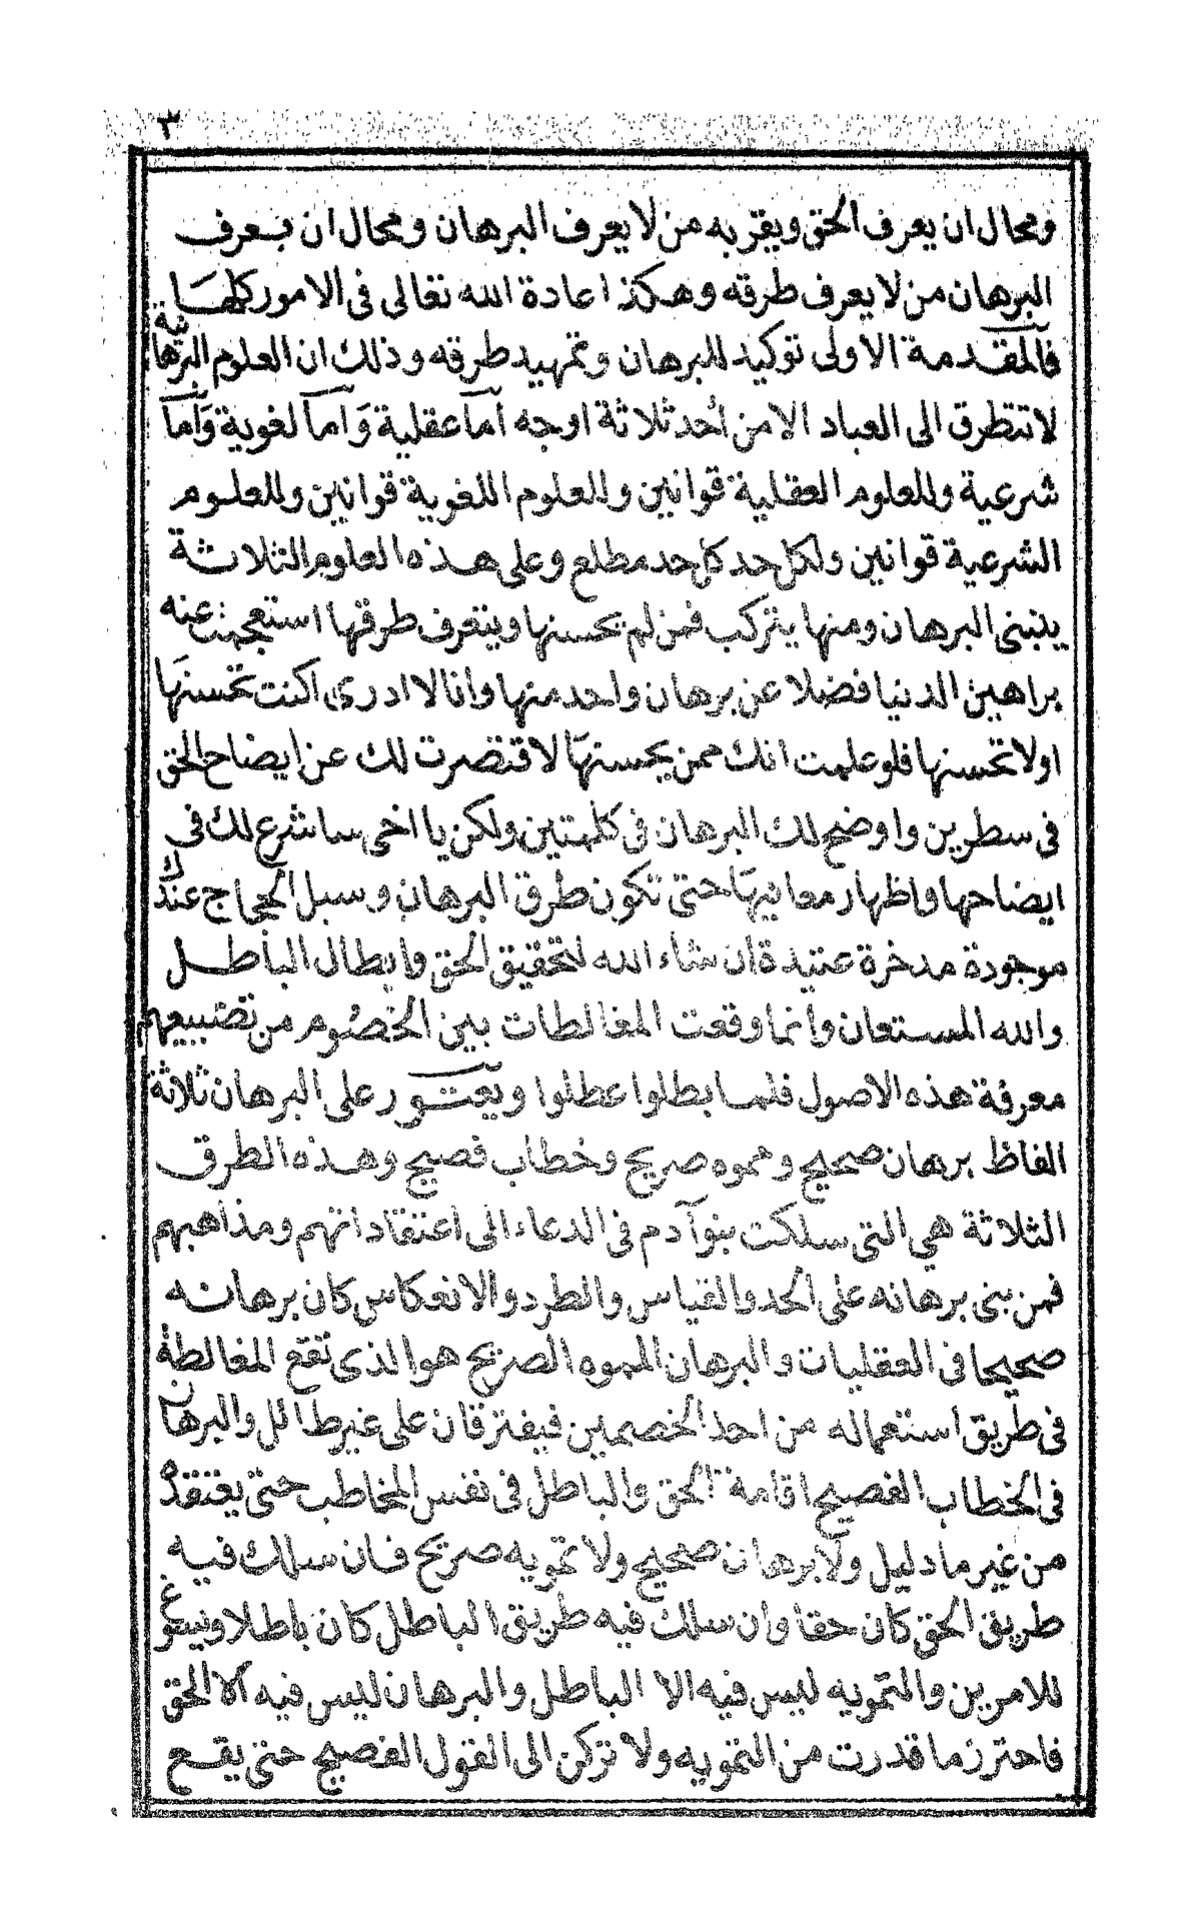 ٣
ومحال ان يعرف الحق ويقر به من لا يعرف البرهان ومحال ان يعرف
البرهان من لا يعرف طرقه وهكذا عادة الله تعالى فى الامور كلها
فالمقدمة الاولى توكيد للبرهان وتمهيد طرقه وذلك ان العلوم البرهانية
لا تتطرق الى العباد الا من أحد ثلاثة اوجه اما عقلية وَاما لغوية وَاما
شرعية وللعلوم العقلية قوانين وللعلوم اللغوية قوانين وللعلوم
الشرعية قوانين ولكل حد كل حد مطلع وعلى هذه العلوم الثلاثة
ينبنى البرهان ومنها يتركب فمن لم يحسنها ويتعرف طرقها استعجمت عنه
براهين الدنيا فضلا عن برهان واحد منها وانا لا ادرى اكنت تحسنها
اولا تحسنها فلو علمت انك ممن يحسنها لاقتصرت لك عن ايضاح الحق
فى سطرين واوضح لك البرهان فى كلمتين ولكن يا اخى ساشرع لك فى
ايضاحها واظهار معانيها حتى تكون طرق البرهان وسبل الحجاج عندك
موجودة مدخرة عتيدة ان شاء الله لتحقيق الحق وابطال الباطل
والله المستعان وانما وقعت المغالطات بين الخصوم من تضييعهم
معرفة هذه الاصول فلما بطلوا عطلوا ويعتور على البرهان ثلاثة
الفاظ برهان صحيح ومموه صريح وخطاب فصيح وهذه الطرق
الثلاثة هي التى سلكت بنو آدم فى الدعاء الى اعتقاداتهم ومذاهبهم
فمن بنى برهانه على الحد والقياس والطرد والانعكاس كان برهانه
صحيحا فى العقليات والبرهان المموه الصريح هو الذى تقع المغالطة
فى طريق استعماله من احد الخصمين فيفترقان على غير طائل والبرهان
فى الخطاب الفصيح اقامة الحق والباطل فى نفس المخاطب حتى يعتقده
من غير ما دليل ولا برهان صحيح ولا تمويه صريح فان سلك فيه
طريق الحق كان حقا وان سلك فيه طريق الباطل كان باطلا ويسوغ
للامرين والتمويه ليس فيه الا الباطل والبرهان ليس فيه الا الحق
فاحترز ما قدرت من التمويه ولا تركن الى القول الفصيح حتى يقع